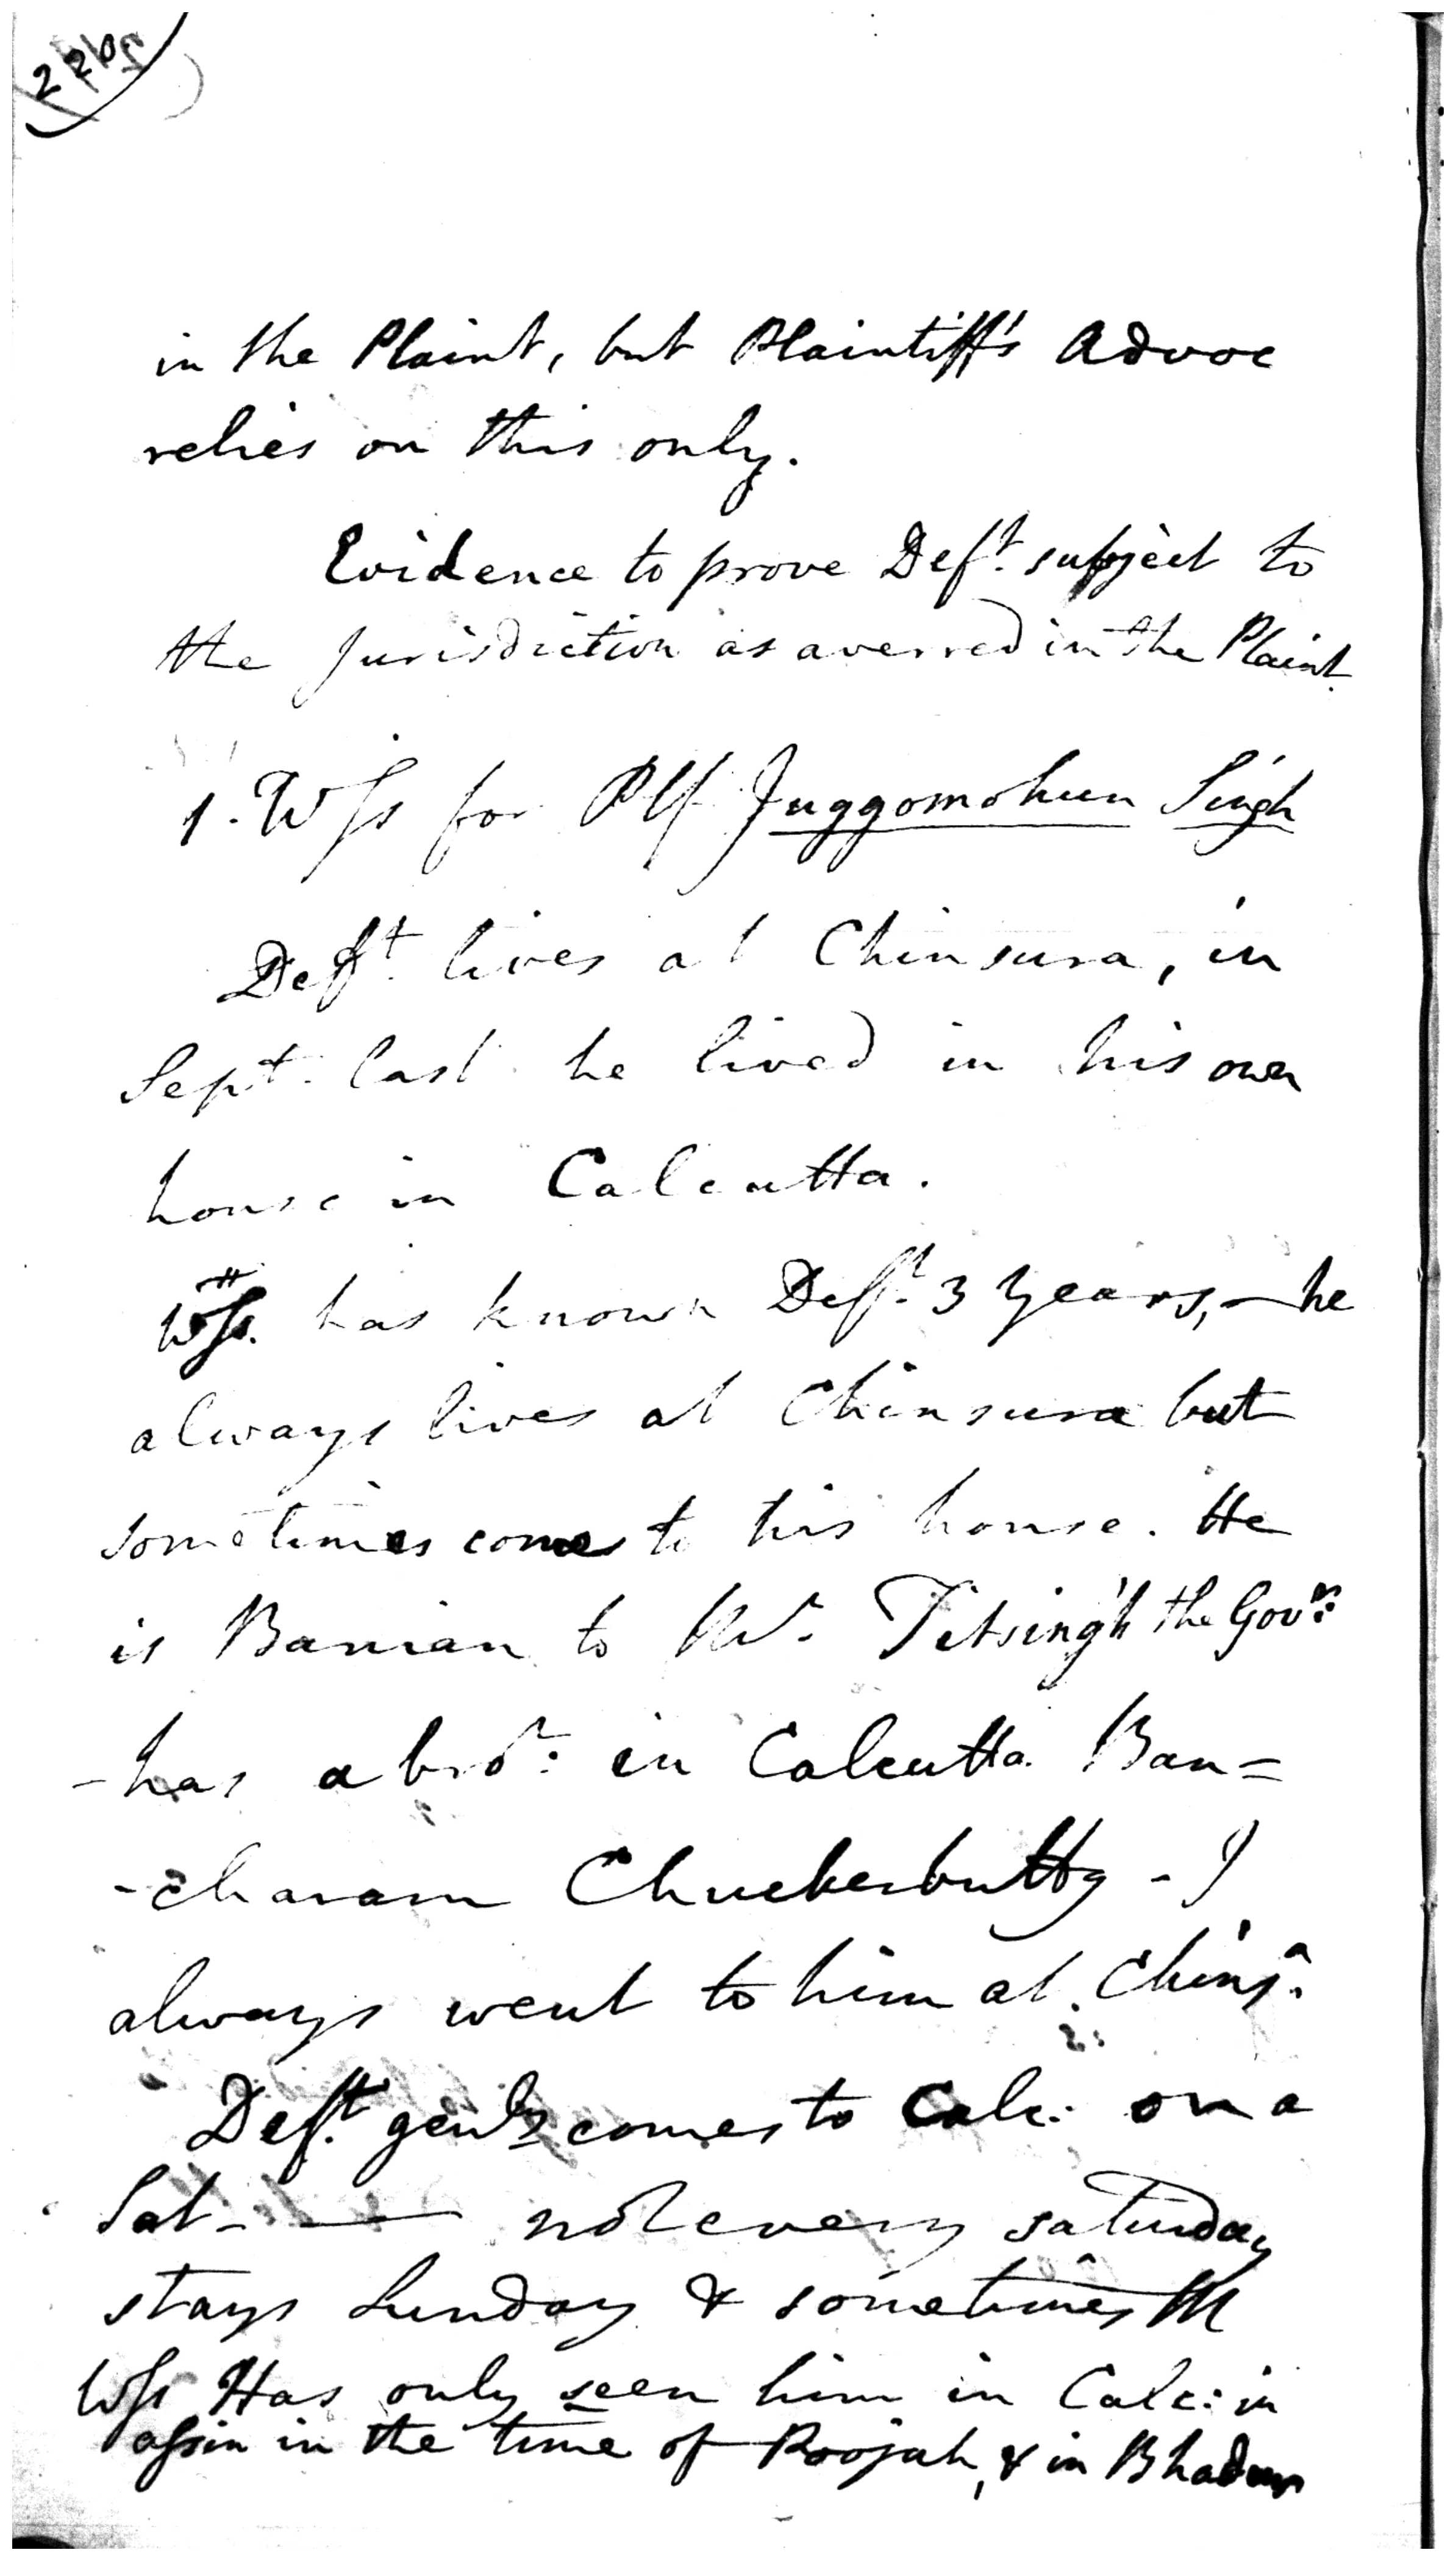 in the Plaint, but Plaintiff's Advoc
relies on this only.
Evidence to prove Deft. subject to
the jurisdiction as averred in the Plaint.
1. Wss for Plf Juggomohun Singh
Deft. lives at Chinsura, in
Sept. last he lived in his own
house in Calcutta.
Wss. has known Deft. 3 years, — he
always lives at Chinsura but
sometimes comes to his house. He
is Banian to Mr. Titsingh the Govr:
- has a bror: in Calcutta Ban=
-charam Chuckerbutty - I
always went to him at Chinsa.
Deft. genly comes to Calc: on a
Sat- — not every saturday
stays Sunday & sometimes M
Wss Has only seen him in Calc: in
assin in the time of Poojah, & in Bhadun